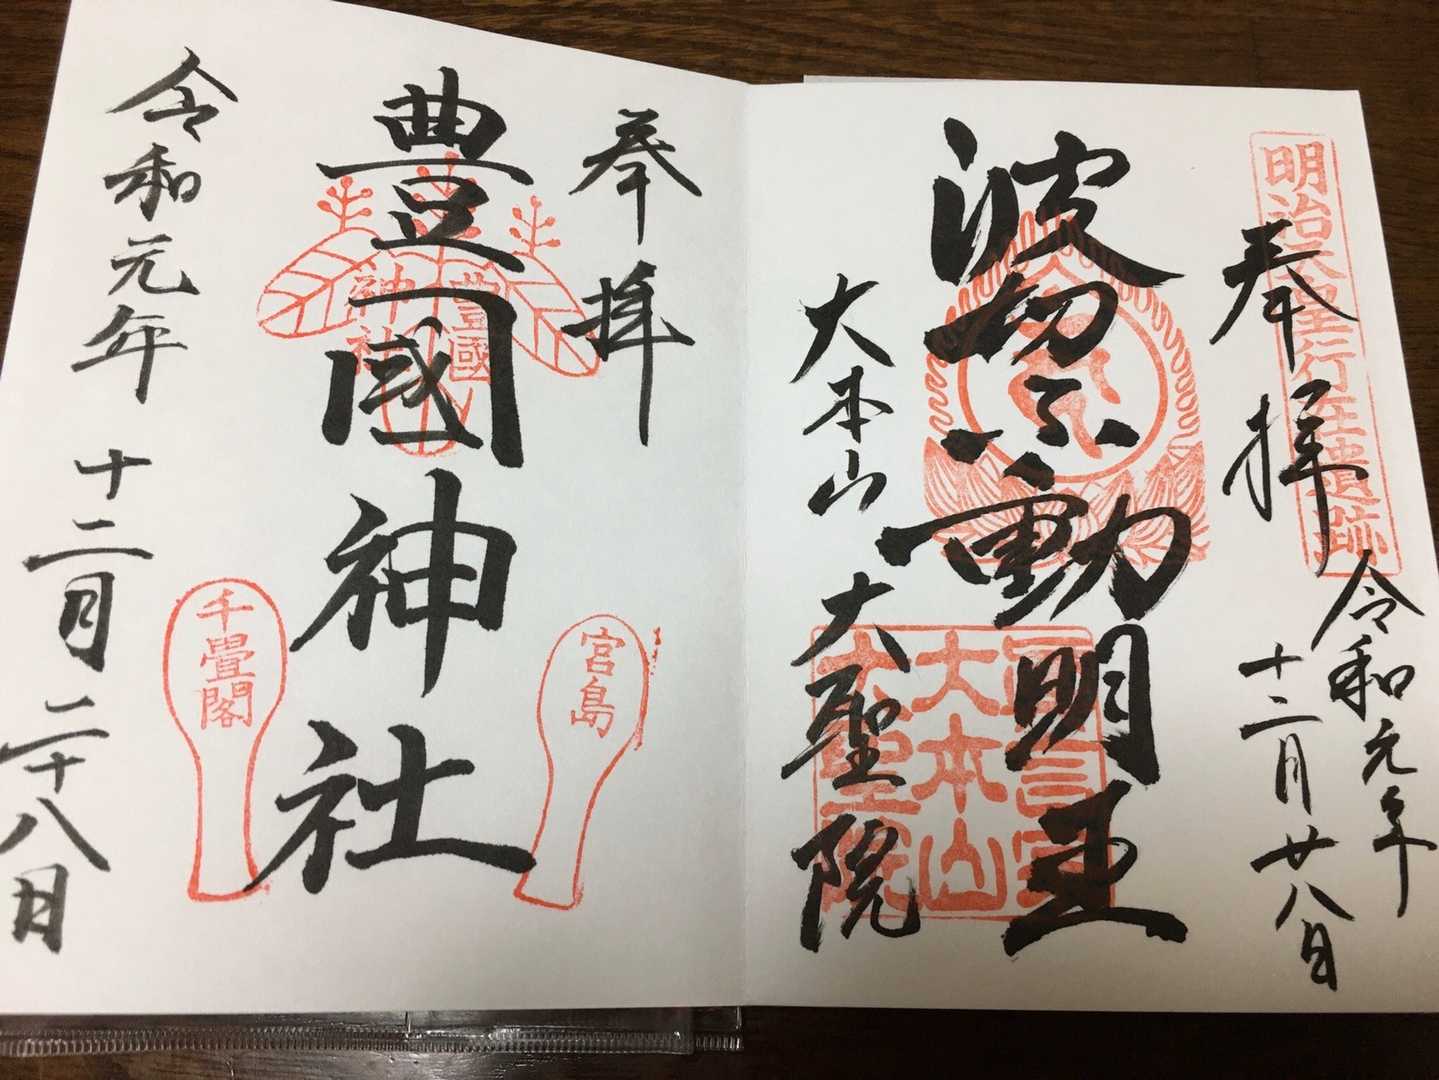 明治天皇行在遺跡
奉拝
令和元年
十二月廿八日
波切不動明王
大本山
大聖院
大本山
大聖院
奉拝
豊國神社
豊國
神社
宮島
千畳閣
令和元年
十二月
二十八日